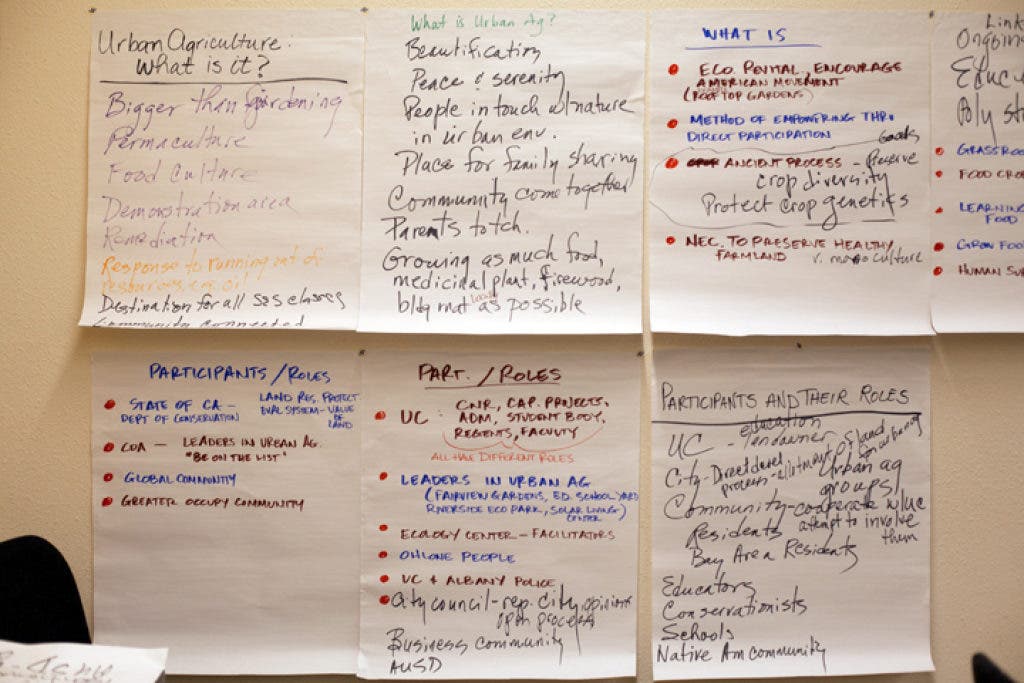 Urban Agriculture:
What is it?
Bigger than gardening
Permaculture
Food Culture
Demonstration area
Remediation
Response to running out of
resources, e.g. oil
Destination for all
Community connected
What is Urban Ag?
Beautification
Peace & serenity
People in touch w/nature
in urban env.
Place for family sharing
Community come together
Parents to tch.
Growing as much food,
medicinal plant, firewood,
bldg mat as possible
WHAT IS
ECO. REVITAL, ENCOURAGE
AMERICAN MOVEMENT
(ROOFTOP GARDENS)
METHOD OF EMPOWERING THRU
DIRECT PARTICIPATION
Goals
ANCIENT PROCESS - Preserve
crop diversity
Protect crop genetics
NEC. TO PRESERVE HEALTHY
FARMLAND v. monoculture
Link
Ongoing
Educ
Poly
GRASSROO
FOOD
LEARNING
FOOD
GROW FOO
HUMAN
PARTICIPANTS/ROLES
STATE OF CA-
DEPT OF CONSERVATION
LAND RES. PROTECT
EVAL SYSTEM - VALUE
OF
LAND
LEADERS IN URBAN AG.
"BE ON THE LIST"
GLOBAL COMMUNITY
GREATER OCCUPY COMMUNITY
PART. / ROLES
UC: CNR, CAP. PROJECTS,
ADM, STUDENT BODY,
REGENTS, FACULTY
ALL HAVE DIFFERENT ROLES
LEADERS IN URBAN AG
(FAIRVIEW GARDENS, ED. SCHOOL YARD
RIVERSIDE ECO PARK, SOLAR LIVING)
CENTER
ECOLOGY CENTER - FACILITATORS
OHLONE PEOPLE
UC & ALBANY POLICE
City council-rep. city opinions
open process
Business community
AUSD
PARTICIPANTS AND THEIR ROLES
education
UC - landowner
City-
process-
of land
Urban ag
groups
Community-cooperate w/UC
attempt to involve
them
Residents
Bay Area Residents
Educators
Conservationists
Schools
Native Am community